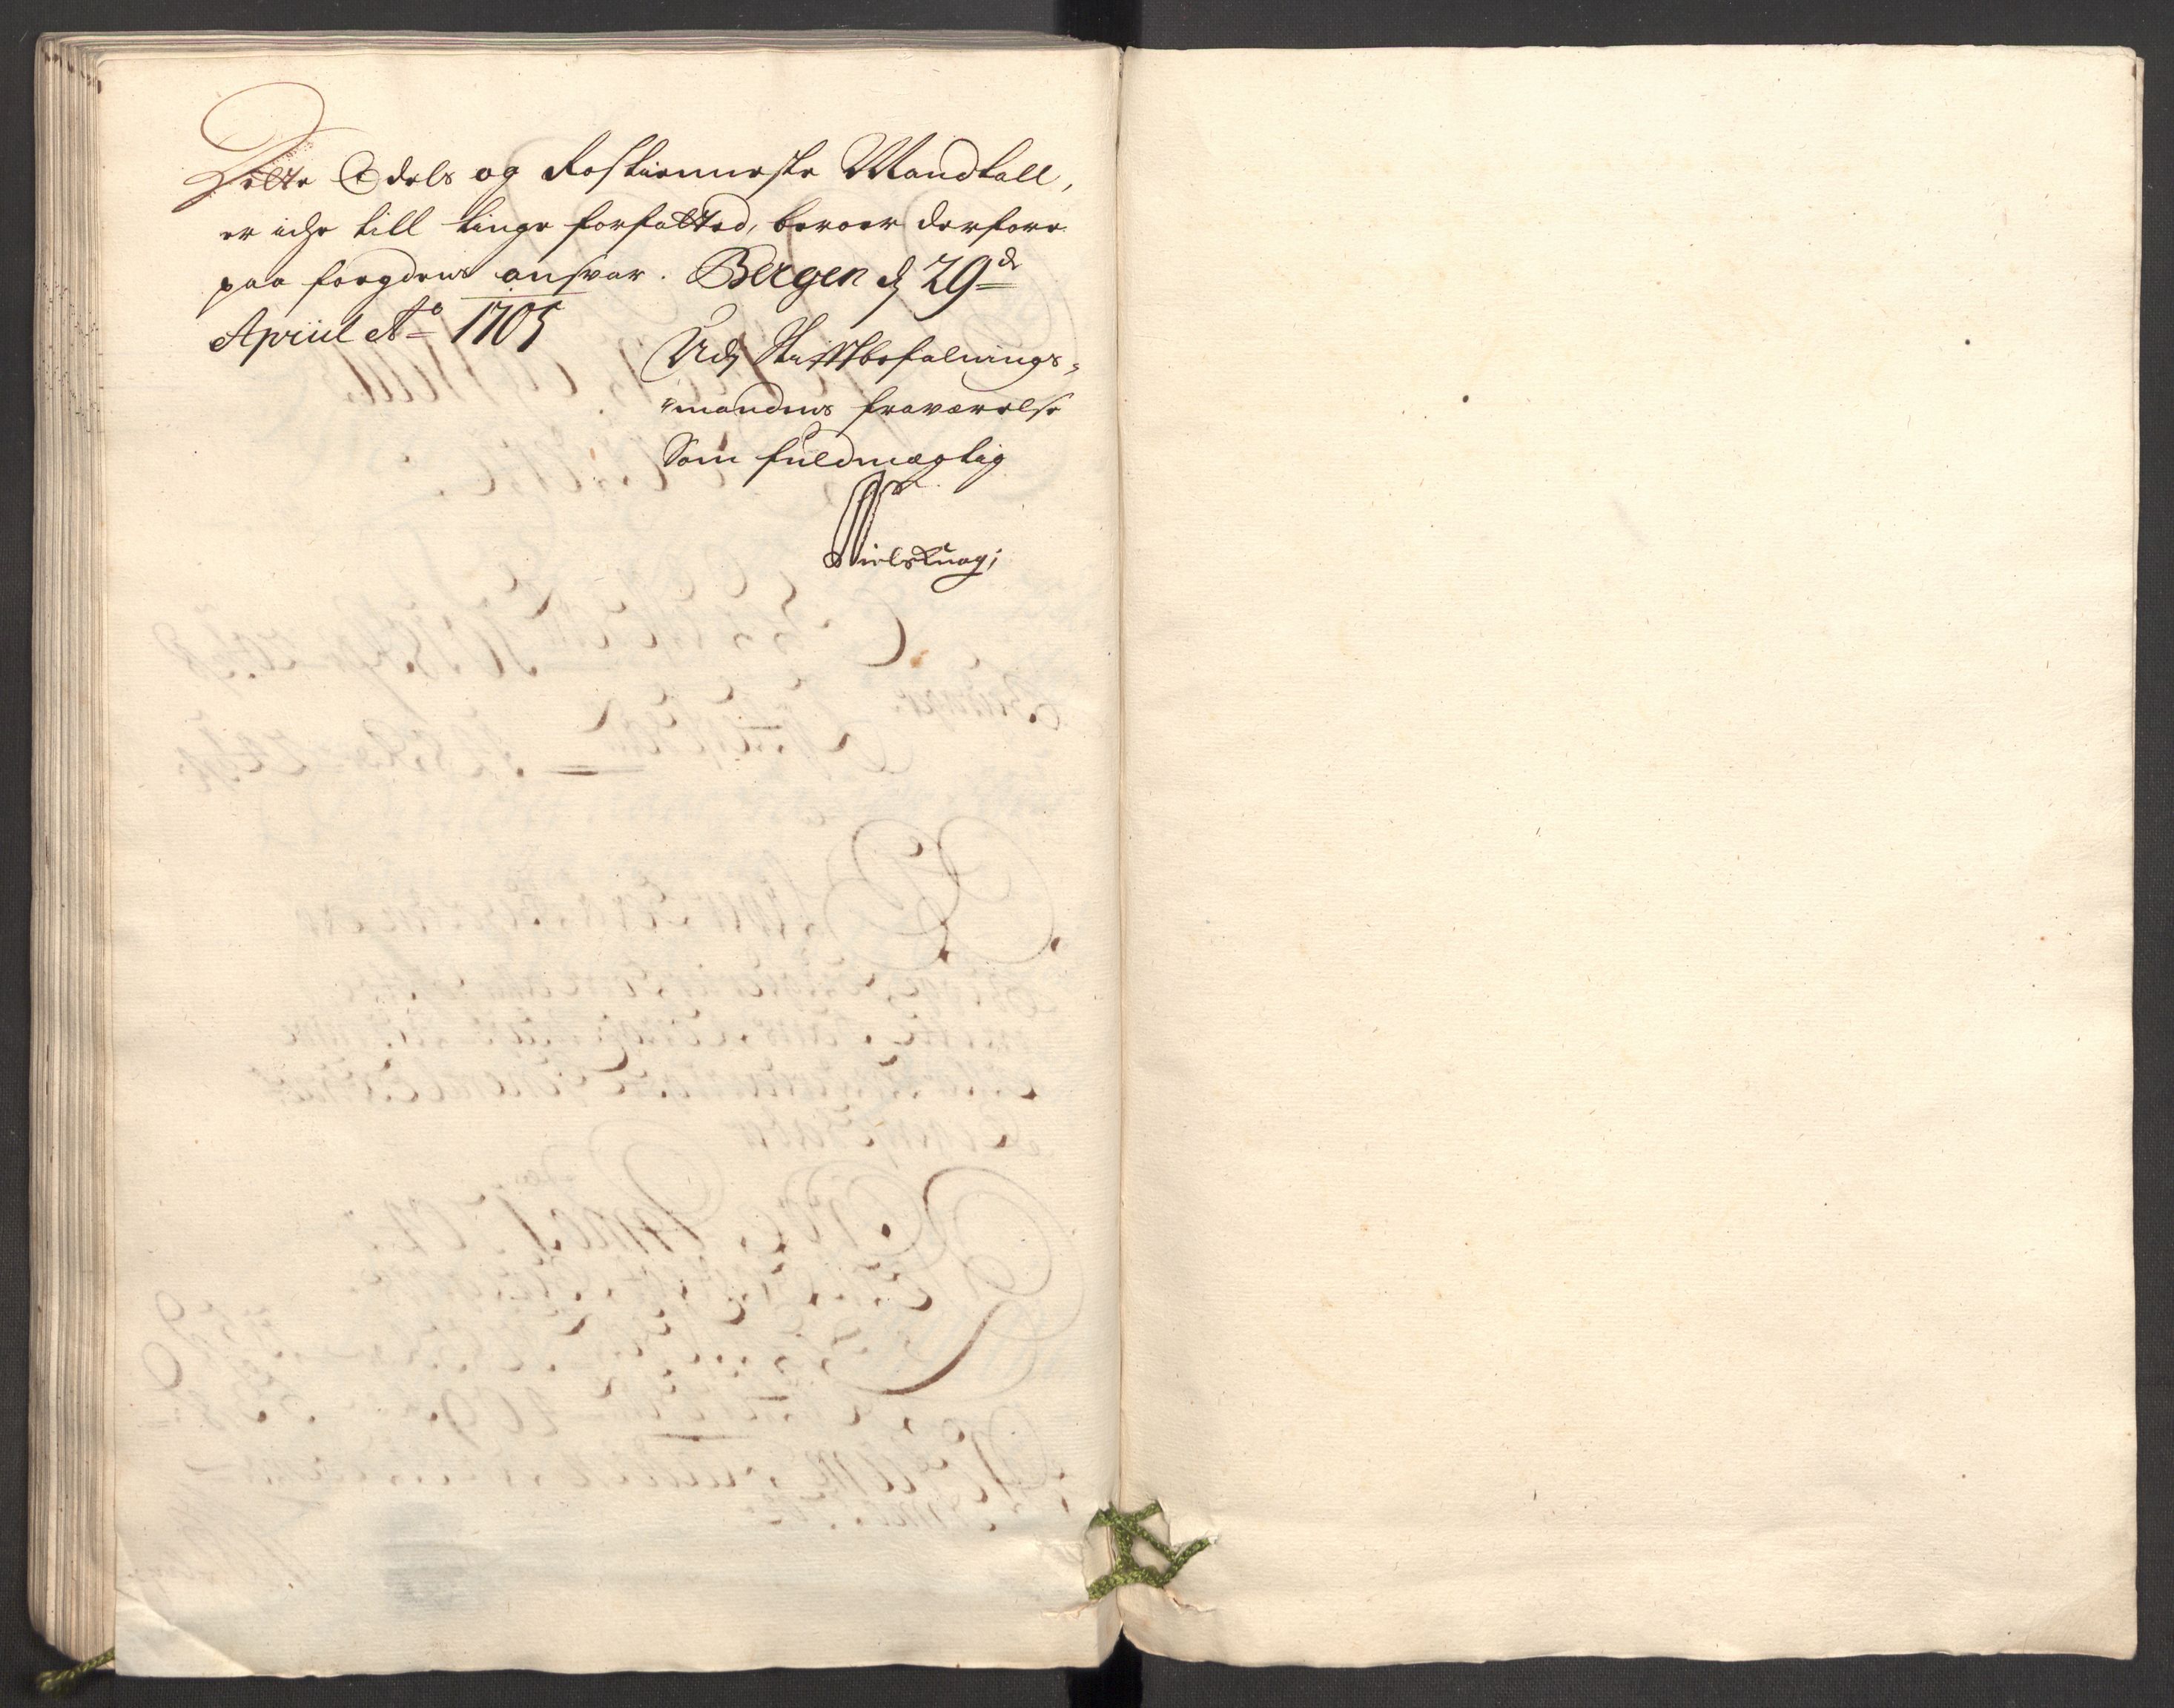 Dette Odels og Rostienneste Mandtall,
er iche till tinge forfatted, beroer derfore
paa fougdens ansvar. Bergen d 29de
Apriil Ao 1705
Udj Stifftbefalnings=
mandens fraværelse
Som fuldmægtig
Niels Knag;